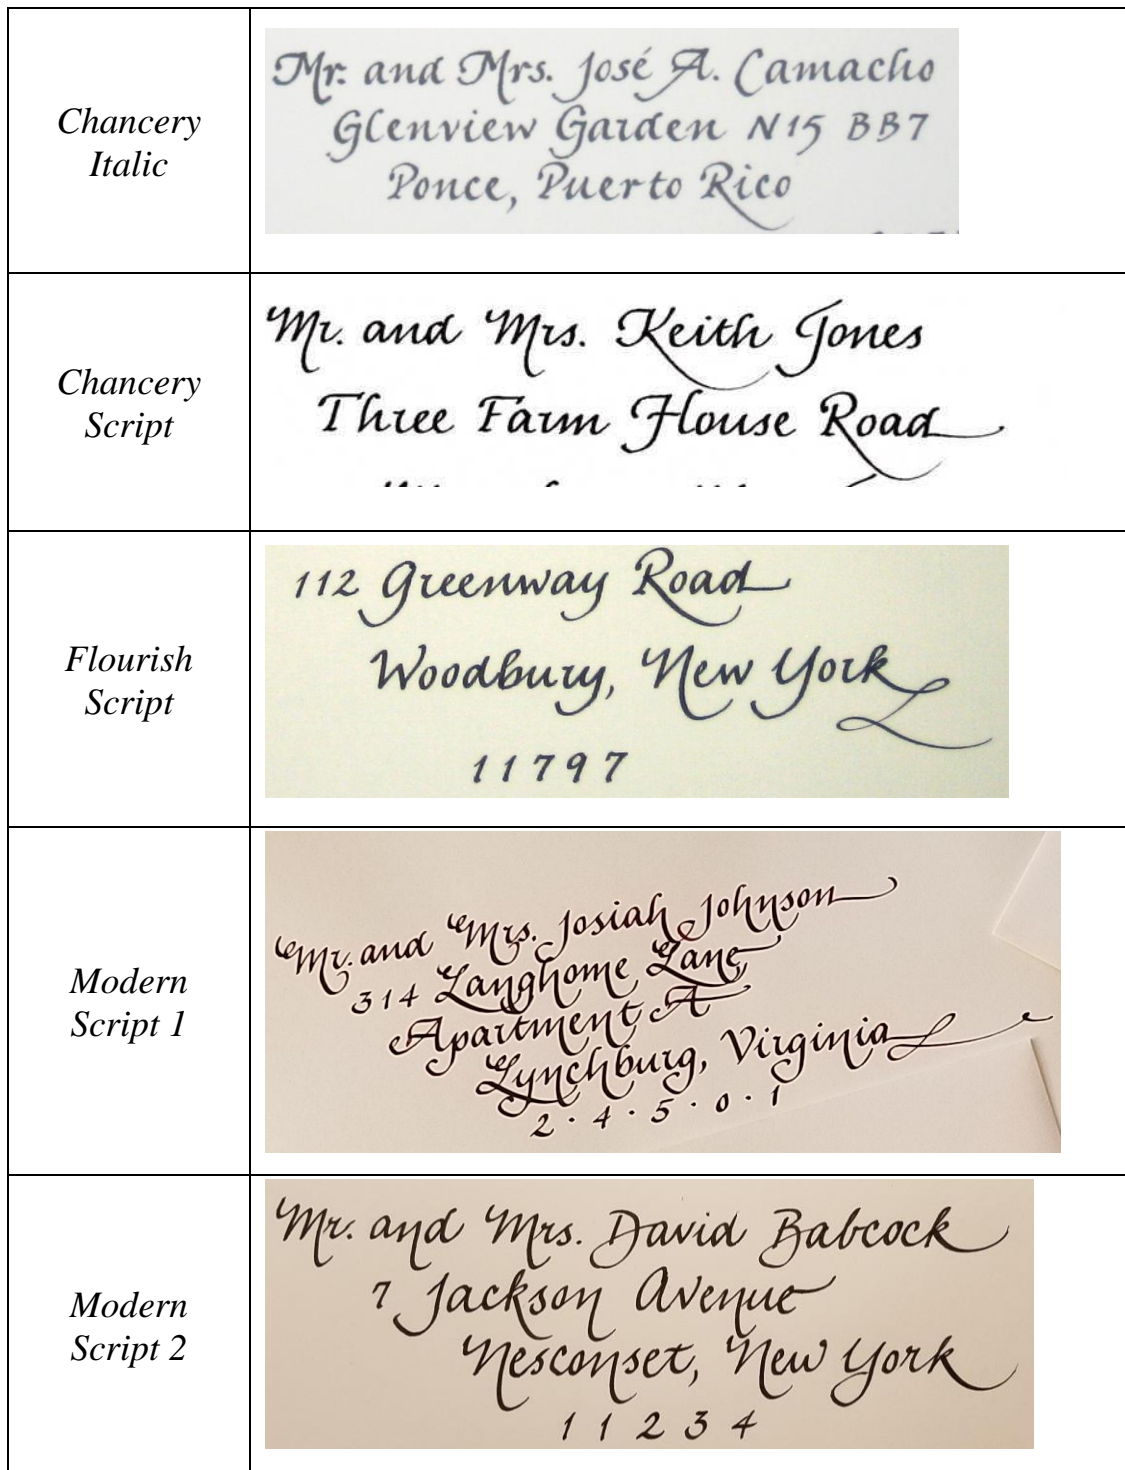 Chancery
Italic
Mr. and Mrs. José A. Camacho
Glenview Garden N15 BB7
Ponce, Puerto Rico
Chancery
Script
Mr. and Mrs. Keith Jones
Three Farm House Road
Flourish
Script
112 Greenway Road
Woodbury, New York
11797
Modern
Script 1
Mr. and Mrs. Josiah Johnson
314 Langhome Lane
Apartment A
Lynchburg, Virginia
2 · 4 · 5 · 0 · 1
Modern
Script 2
Mr. and Mrs. David Babcock
7 Jackson Avenue
Nesconset, New York
11234